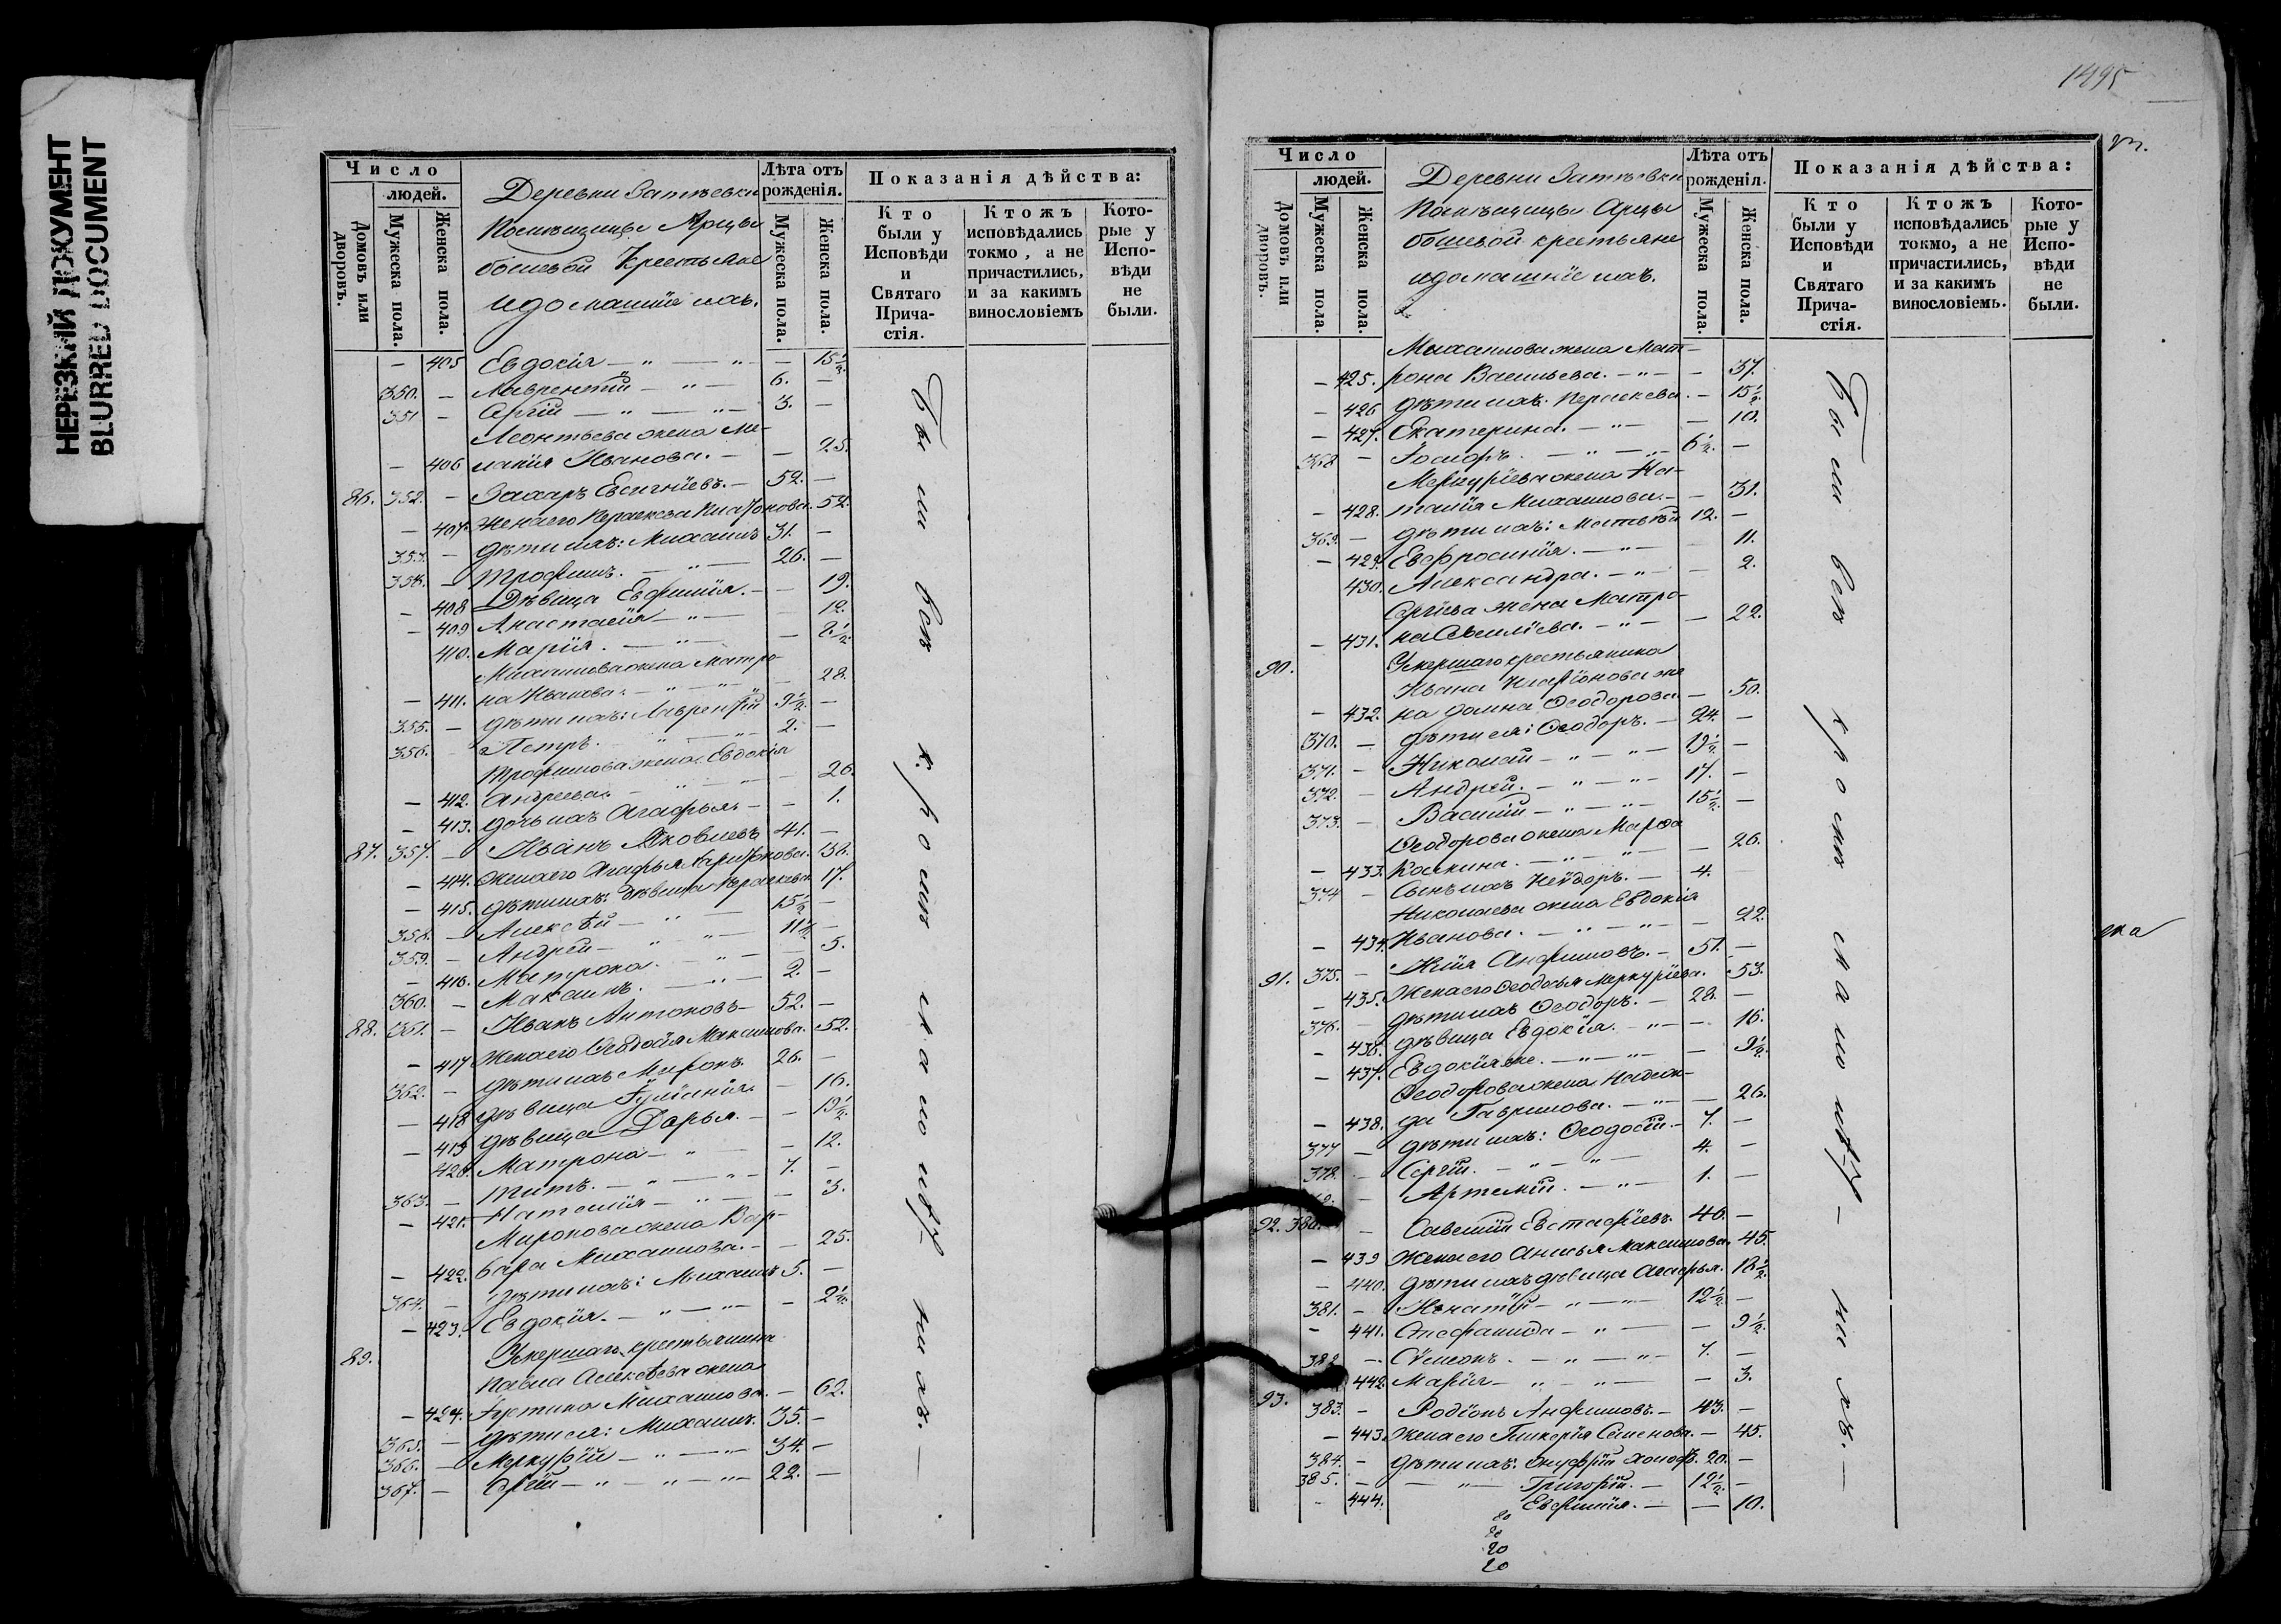 НЕРЕЗКИЙ ДОКУМЕНТ
BLURRED DOCUMENT
Число
людей.
Домовъ или дворовъ.
Мужеска пола.
Женска пола.
Деревни Затѣевки
Помѣщицы Арцы-
бошевой Крестьяне
и домашніи ихъ.
Лѣта отъ рожденія.
Мужеска пола.
Женска пола.
Показанія дѣйства:
Кто были у Исповѣди и Святаго Прича-стія.
Ктожъ исповѣдались токмо, а не причастились, и за какимъ винословіемъ
Кото-рые у Испо-вѣди не были.
— 405 Евдокія — " — " — 15½
350. — Лаврентій — " — 6. —
351 — Сергій — " — " — 3. —
Леонтьева жена Ме-
— 406 ланія Иванова. — — 25.
86. 352. — Захаръ Евсигніевъ. — 52. —
— 407. Жена его Параскева Ксафонова. 54.
353. — дѣти ихъ: Михаилъ 31. —
354. — Трофимъ. — " — 26. —
— 408 Дѣвица Евфимія. — — 19.
— 409 Анастасія — " — 12.
410. Марія. — " — — 8½
Михаилова жена Матро-
— 411. на Иванова. — " — " — 28.
355. — дѣти ихъ: Лаврентій 9½ —
356. Петръ. " — " — 2. —
Трофимова жена Евдокія
— 412. Андреева. — " — " — 26.
— 413. дочь ихъ Агафья. — — 1.
87. 357. — Иванъ Яковлевъ 41. —
— 414. Жена его Агафья Харитонова. 38.
— 415. дѣти ихъ: дѣвица Параскева 17.
358. — Алексѣй — " — 15½ —
359. — Андрей — " — " — 11½ —
— 416. Матрона. — " — — 5.
360. — Максимъ. — " — 2. —
88. 361. — Иванъ Антоновъ — 52. —
— 417 Жена его Ѳеодосія Максимова. 52.
362. — дѣти ихъ Миронъ. 26. —
— 418 дѣвица Іуліанія. — 16.
— 419 дѣвица Дарья. — — 13½
420. Матрона — " — — 12.
363. — Титъ. — " — " — 7. —
— 421. Наталія — " — — 3.
Миронова жена Вар-
— 422. вара Михаилова. — — 25.
364. — дѣти ихъ: Михаилъ 5. —
— 423. Евдокія. — " — " — — 2½
89. Умершаго крестьянина
Павла Алексѣева жена
— 424. Іустина Михаилова. — 62.
365. — дѣти ея: Михаилъ. 35. —
366. — Меркурій — " — " — 34. —
367. — Сергій — " — " — " — 22. —
Были всѣ кромѣ малолѣт-нихъ. —
1495
Число
людей.
Домовъ или дворовъ.
Мужеска пола.
Женска пола.
Деревни Затѣевки
Помѣщицы Арцы-
бошевой крестьяне
и домашніе ихъ.
Лѣта отъ рожденія.
Мужеска пола.
Женска пола.
Показанія дѣйства:
Кто были у Исповѣди и Святаго Прича-стія.
Ктожъ исповѣдались токмо, а не причастились, и за какимъ винословіемъ.
Кото-рые у Испо-вѣди не были.
Михаилова жена Мат-
— 425. рона Васильева. — " — — 37.
— 426 дѣти ихъ: Параскева. — 15½
— 427. Екатерина. — " — — 10.
368 — Іосифъ. — " — " — 6½ —
Меркуріева жена На-
— 428. талія Михаилова. — — 31.
369. — дѣти ихъ: Матвѣй 12. —
— 429. Евфросинія. — " — — 11.
430. Александра. — " — — 2.
Сергіева жена Матро-
— 431. на Савеліева. — " — — 22.
90. Умершаго крестьянина
Ивана Ксафонова же
— 432. на Домна Ѳеодорова — 50.
370. — дѣти ея: Ѳеодоръ. — 24. —
371. — Николай — " — " — 19½ —
372. — Андрей. — " — " — 17. —
373. — Василій — " — " — 15½ —
Ѳеодорова жена Марѳа
— 433. — " — " — — 26.
374 — Сынъ ихъ — 4. —
Николаева жена Евдокія
— 434. Иванова. — " — " — — 22.
91. 375. — Илія Анфимовъ. — 51. —
— 435. Жена его Ѳеодосья Меркуріева. 53.
376. — дѣти ихъ Ѳеодоръ. — 28. —
— 436. дѣвица Евдокія. — " — — 16.
— 437. Евдокія же. — " — " — — 9½
Ѳеодорова жена Надеж-
— 438. да Гаврилова. — " — — 26.
377 — дѣти ихъ: Ѳеодосій. — 7. —
378. — Сергій. — " — " — 4. —
Артемій. — " — 1. —
92. 380. — Савелій Евстафіевъ. 46. —
— 439 Жена его Анисья Максимова. 45.
— 440. дѣти ихъ дѣвица Агафья. 18½
381. — Игнатій — " — " — 12½ —
— 441. Стефанида — " — — 9½
382 — Сѵмеонъ. — " — " — 7. —
442. Марія — " — " — — 3.
93. 383. — Родіонъ Анфимовъ. — 43. —
— 443. Жена его Гликерія Семенова. — 45.
384. — дѣти ихъ: Онуфрій холос. 20. —
385. — — " — Григорій. — 12½ —
— 444. Евфимія. — — 10.
Были всѣ кромѣ малолѣт-нихъ. —
20
20